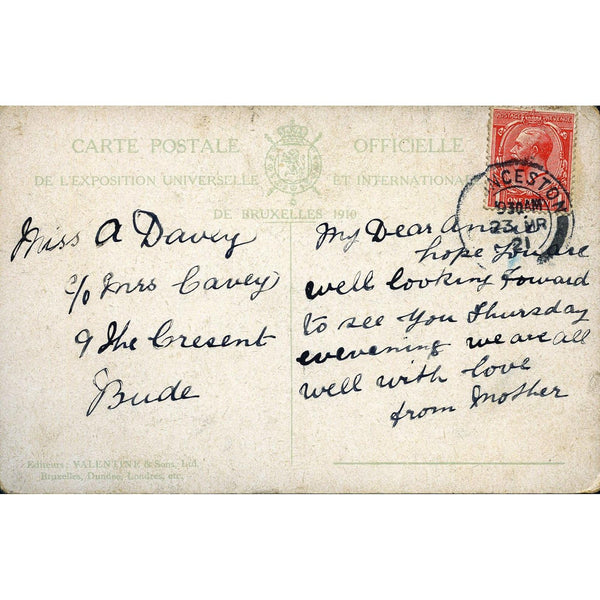 CARTE POSTALE OFFICIELLE
DE L'EXPOSITION UNIVERSELLE ET INTERNATIONALE
DE BRUXELLES 1910
POSTAGE REVENUE
ONE
NCESTON
930AM
23 MR
21
Miss A Davey
c/o Mrs Cavey
9 The Cresent
Bude
My Dear
hope You are
well looking Foward
to see You Thursday
evevening we are all
well with love
from Mother
Editeurs: VALENTINE & Sons, Ltd.
Bruxelles, Dundee, Londres, etc.